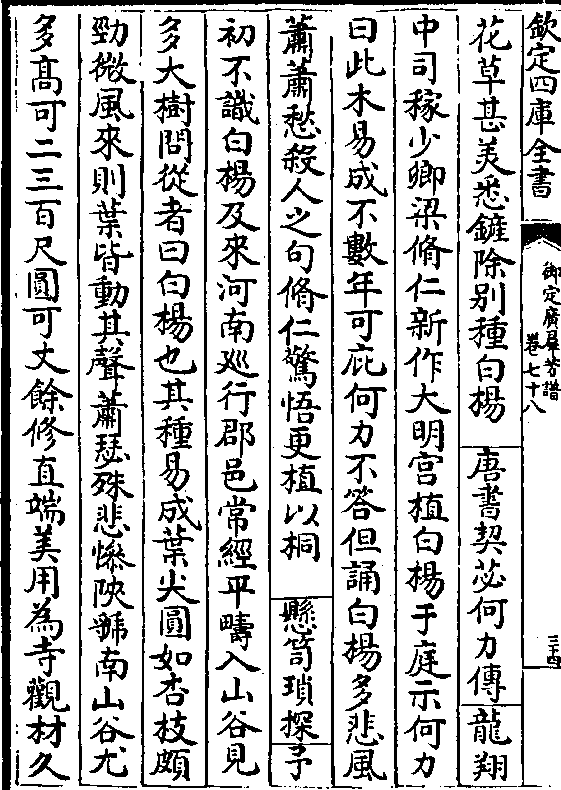 欽定四庫全書
御定廣羣芳譜
卷七十八
三十四
花草甚美悉鏟除别種白楊　唐書契苾何力傳龍翔
中司稼少卿梁脩仁新作大明宫植白楊于庭示何力
曰此木易成不數年可庇何力不答但誦白楊多悲風
蕭蕭愁殺人之句脩仁驚悟更植以桐　懸笥瑣探予
初不識白楊及來河南廵行郡邑常經平疇入山谷見
多大樹問從者曰白楊也其種易成葉尖圓如杏枝頗
勁微風來則葉皆動其聲蕭瑟殊悲慘陜虢南山谷尤
多髙可二三百尺圓可丈餘修直端美用為寺觀材久